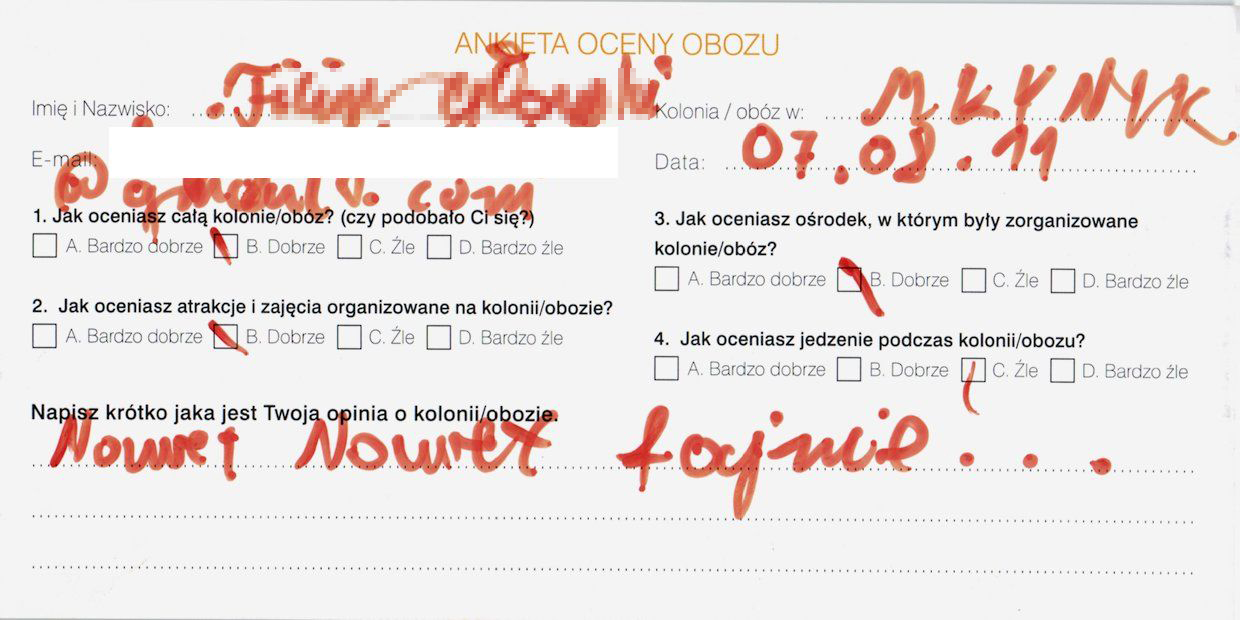 ANKIETA OCENY OBOZU
Imię i Nazwisko:
Kolonia / obóz w:
E-mail:
Data: 07.08.11
@gmail.com
1. Jak oceniasz całą kolonie/obóz? (czy podobało Ci się?)
A. Bardzo dobrze B. Dobrze C. Źle D. Bardzo źle
2. Jak oceniasz atrakcje i zajęcia organizowane na kolonii/obozie?
A. Bardzo dobrze B. Dobrze C. Źle D. Bardzo źle
3. Jak oceniasz ośrodek, w którym były zorganizowane
kolonie/obóz?
A. Bardzo dobrze B. Dobrze C. Źle D. Bardzo źle
4. Jak oceniasz jedzenie podczas kolonii/obozu?
A. Bardzo dobrze B. Dobrze C. Źle D. Bardzo źle
Napisz krótko jaka jest Twoja opinia o kolonii/obozie.
fajnie...